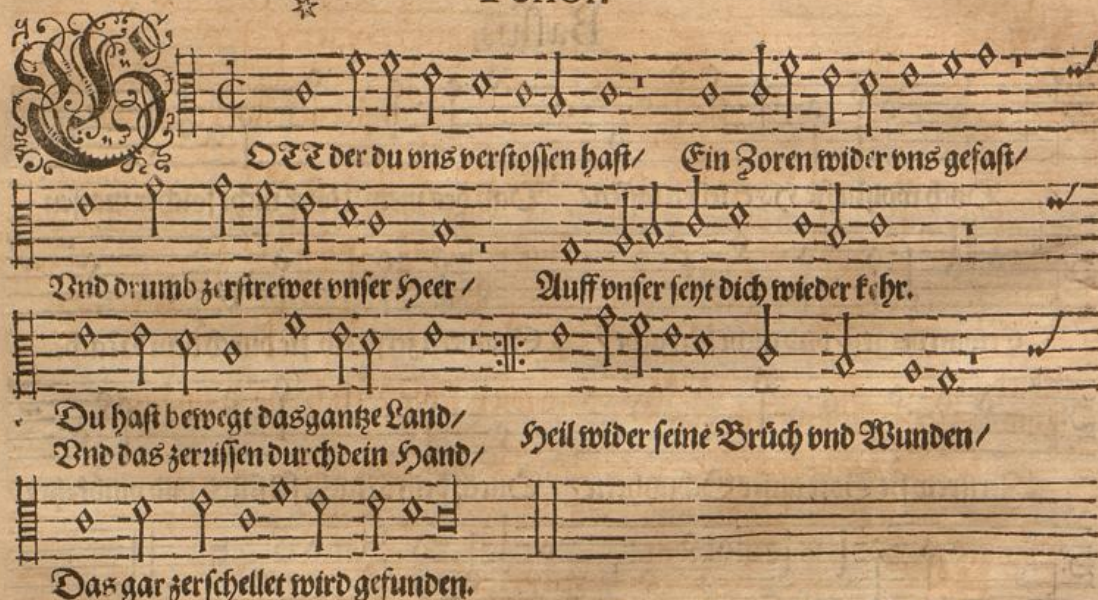 GOTT der du vns verstossen hast/ Ein Zoren wider vns gefast/
Vnd drumb zerstrewet vnser Heer/ Auff vnser seyt dich wieder kehr.
Du hast bewegt das gantze Land/
Vnd das zerrissen durch dein Hand/
Heil wider seine Brüch vnd Wunden/
Das gar zerschellet wird gefunden.